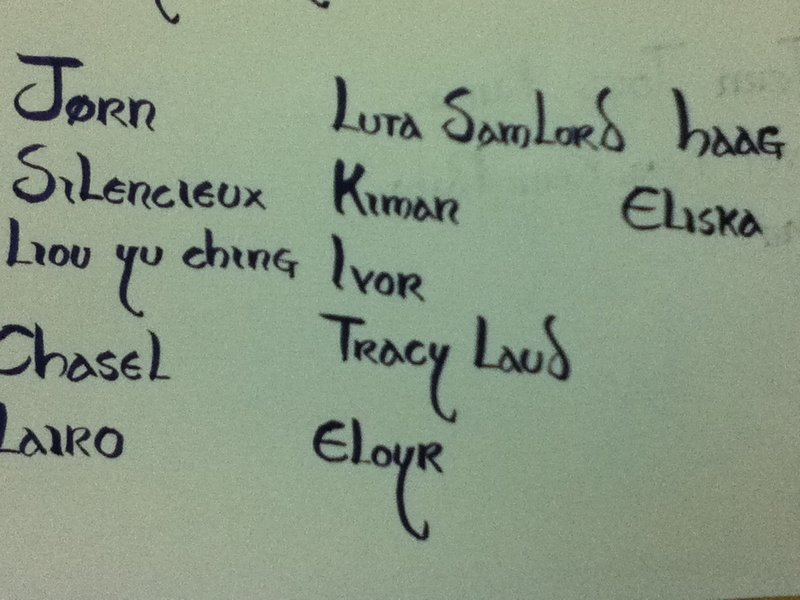 Jørn
Silencieux
Liou yu ching
Chasel
Lairo
Luta Samlord haag
Kiman Eliska
Ivor
Tracy Laud
Eloyr